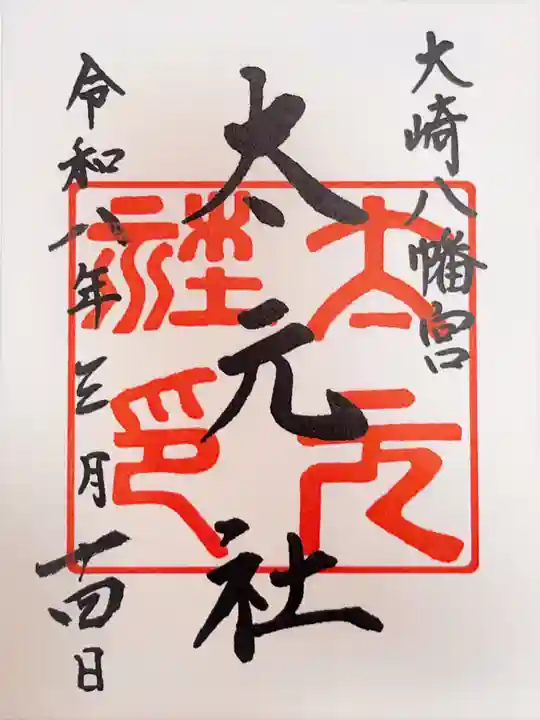 大崎八幡宮
太元社
令和八年三月十四日
太元社印